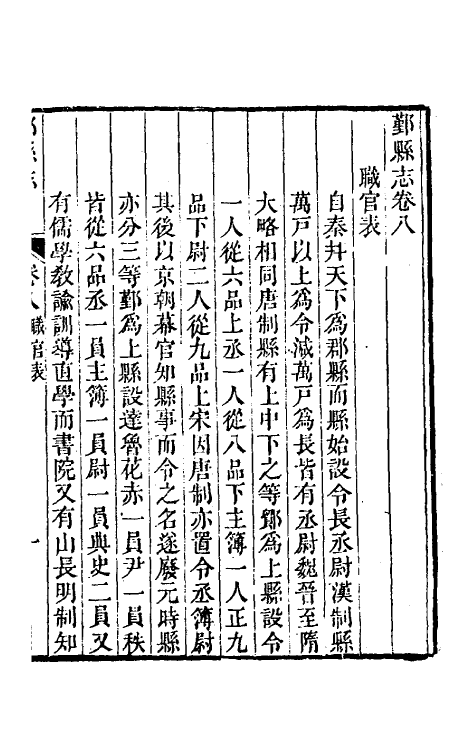 鄞縣志卷八
職官表
自秦幷天下爲郡縣而縣始設令長丞尉漢制縣
萬戸以上爲令減萬戸爲長皆有丞尉魏晉至隋
大略相同唐制縣有上中下之等鄮爲上縣設令
一人從六品上丞一人從八品下主簿一人正九
品下尉二人從九品上宋因唐制亦置令丞簿尉
其後以京朝幕官知縣事而令之名遂廢元時縣
亦分三等鄞爲上縣設達魯花赤一員尹一員秩
皆從六品丞一員主簿一員尉一員典史二員又
有儒學敎諭訓導直學而書院又有山長明制知
卷八 職官表 一